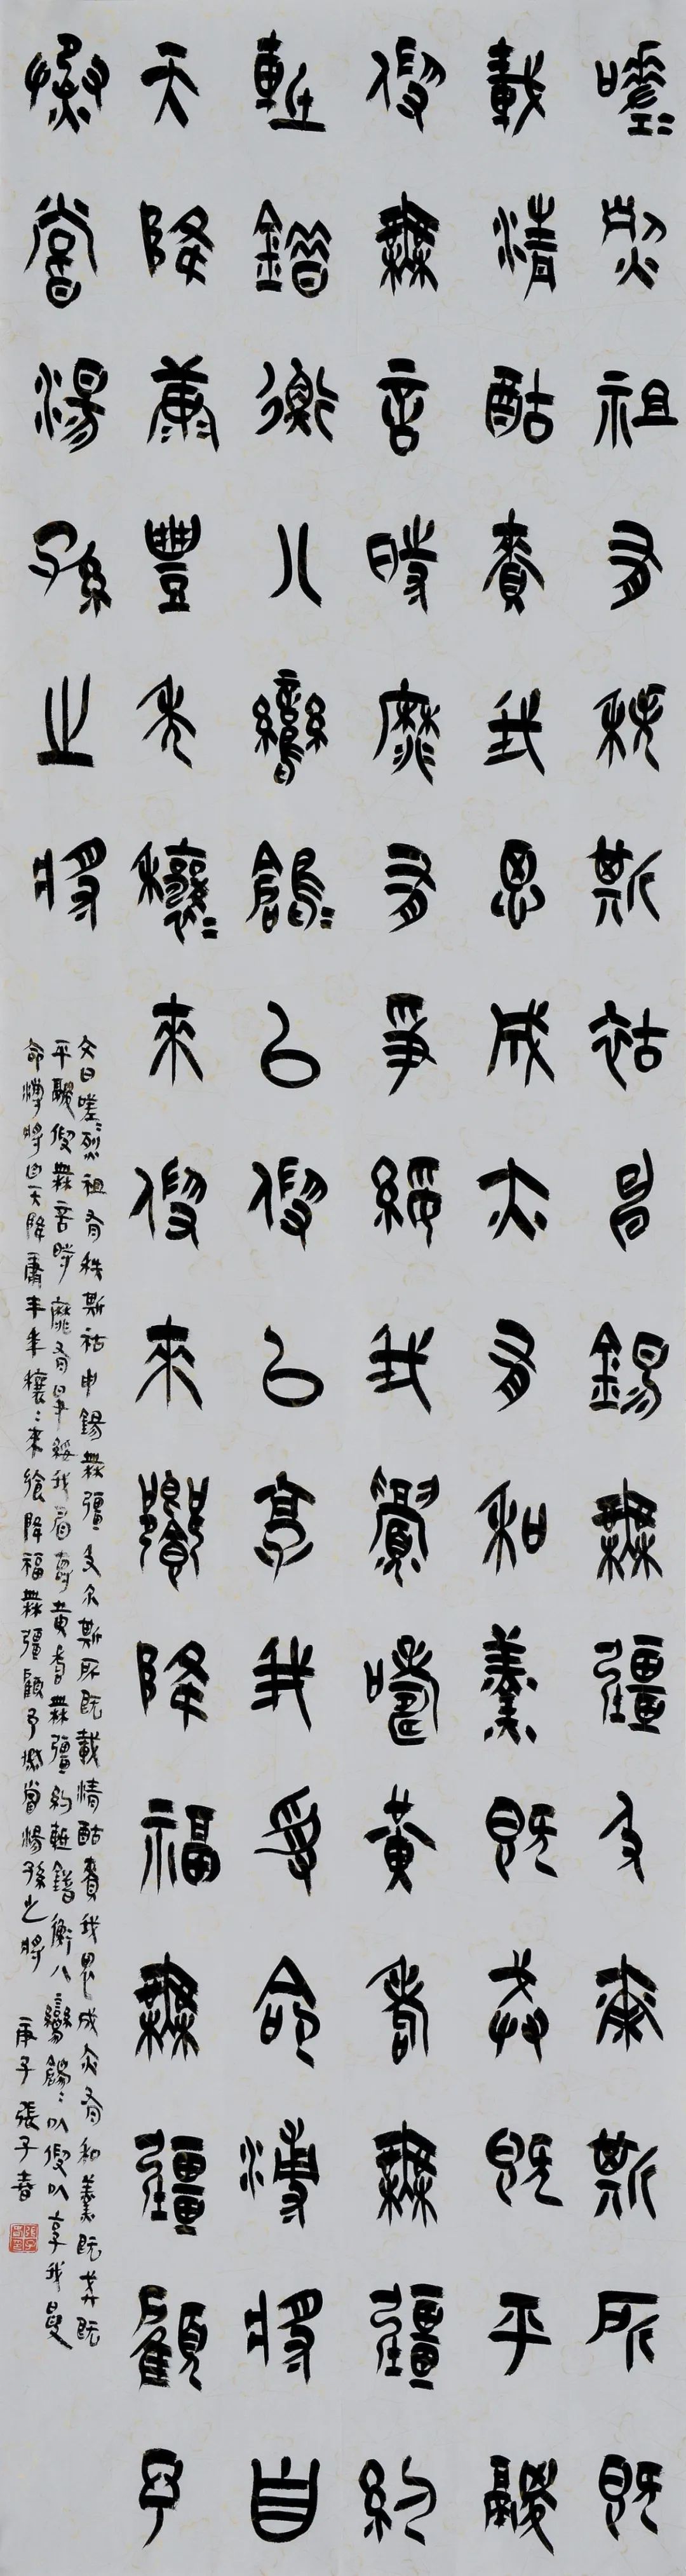 嗟嗟烈祖有秩斯祜申錫無疆及爾斯所既
載清酤賚我思成亦有和羹既戒既平鬷
假無言時靡有爭綏我眉壽黃耇無疆約
軝錯衡八鸞鶬鶬以假以享我受命溥將自
天降康豐年穰穰來假來饗降福無疆顧予
烝嘗湯孫之將
文曰嗟嗟烈祖有秩斯祜申錫無疆及尔斯所既載清酤賚我思成亦有和羹既戒既
平鬷假無言時靡有爭綏我眉壽黃耇無疆約軝錯衡八鸞鶬鶬以假以享我受
命溥將自天降康丰年穰穰來飨降福無疆顧予烝嘗湯孫之將 庚子 張子春